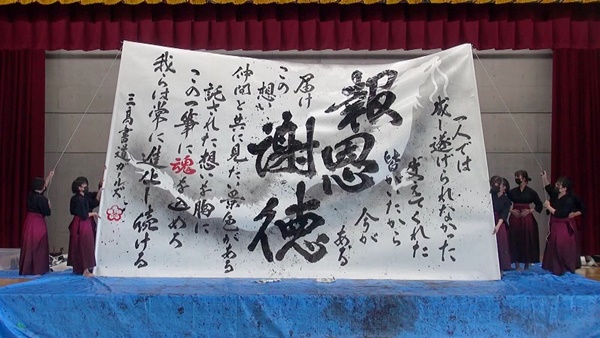 一人では
成し遂げられなかった
支えてくれた
皆がいたから
今が
ある
報恩
謝徳
届け
この想い
仲間と共に見た景色がある
託された想いを胸に
この一筆に魂を込める
我らは常に進化し続ける
三島書道ガールズ